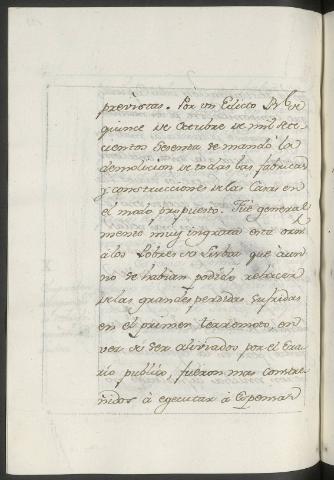 previstas. Por un Edicto Rl. de
quince de Octubre de mil sete
cientos sesenta se mandó la
demolicion de todas las fabricas
y construcciones de las Casas en
el modo propuesto. Fué general
mente muy ingrata esta orn.
á los Pobres de Lisboa que aun
no se habian podido rehacer
de las grandes perdidas sufridas
en el primer terremoto, en
ver de ser aliviados por el Era
rio publico, fueron mas constre
ñidos à egecutar à Expensas